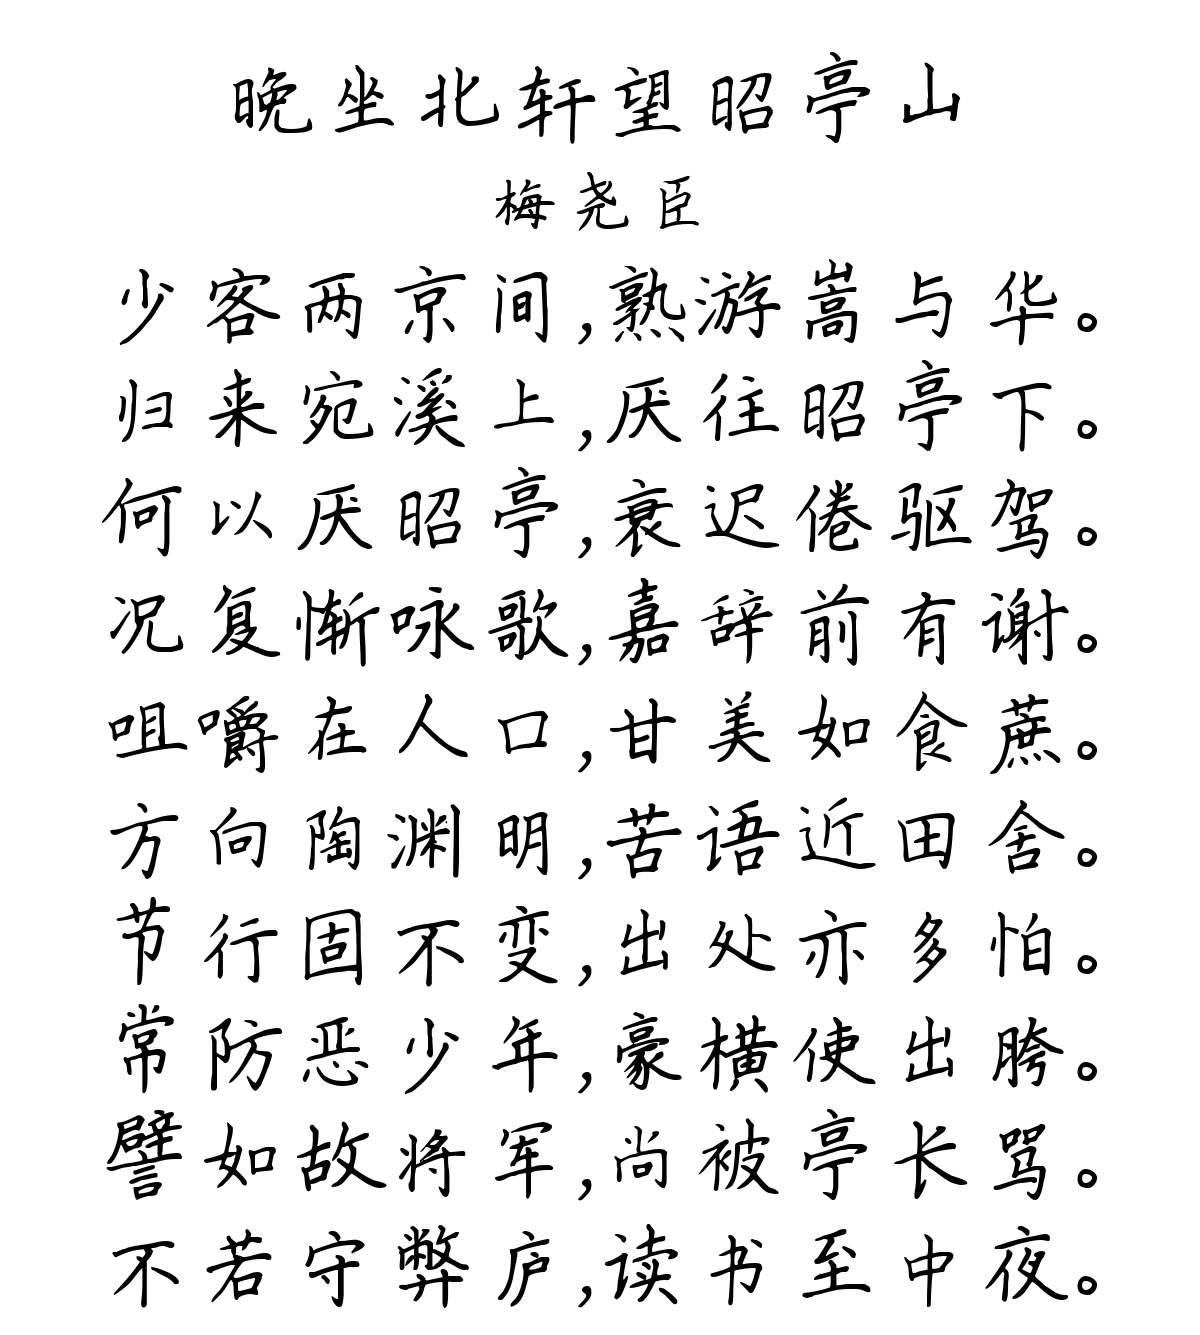 晚坐北轩望昭亭山
梅尧臣
少客两京间,熟游嵩与华。
归来宛溪上,厌往昭亭下。
何以厌昭亭,衰迟倦驱驾。
况复惭咏歌,嘉辞前有谢。
咀嚼在人口,甘美如食蔗。
方向陶渊明,苦语近田舍。
节行固不变,出处亦多怕。
常防恶少年,豪横使出胯。
譬如故将军,尚被亭长骂。
不若守弊庐,读书至中夜。